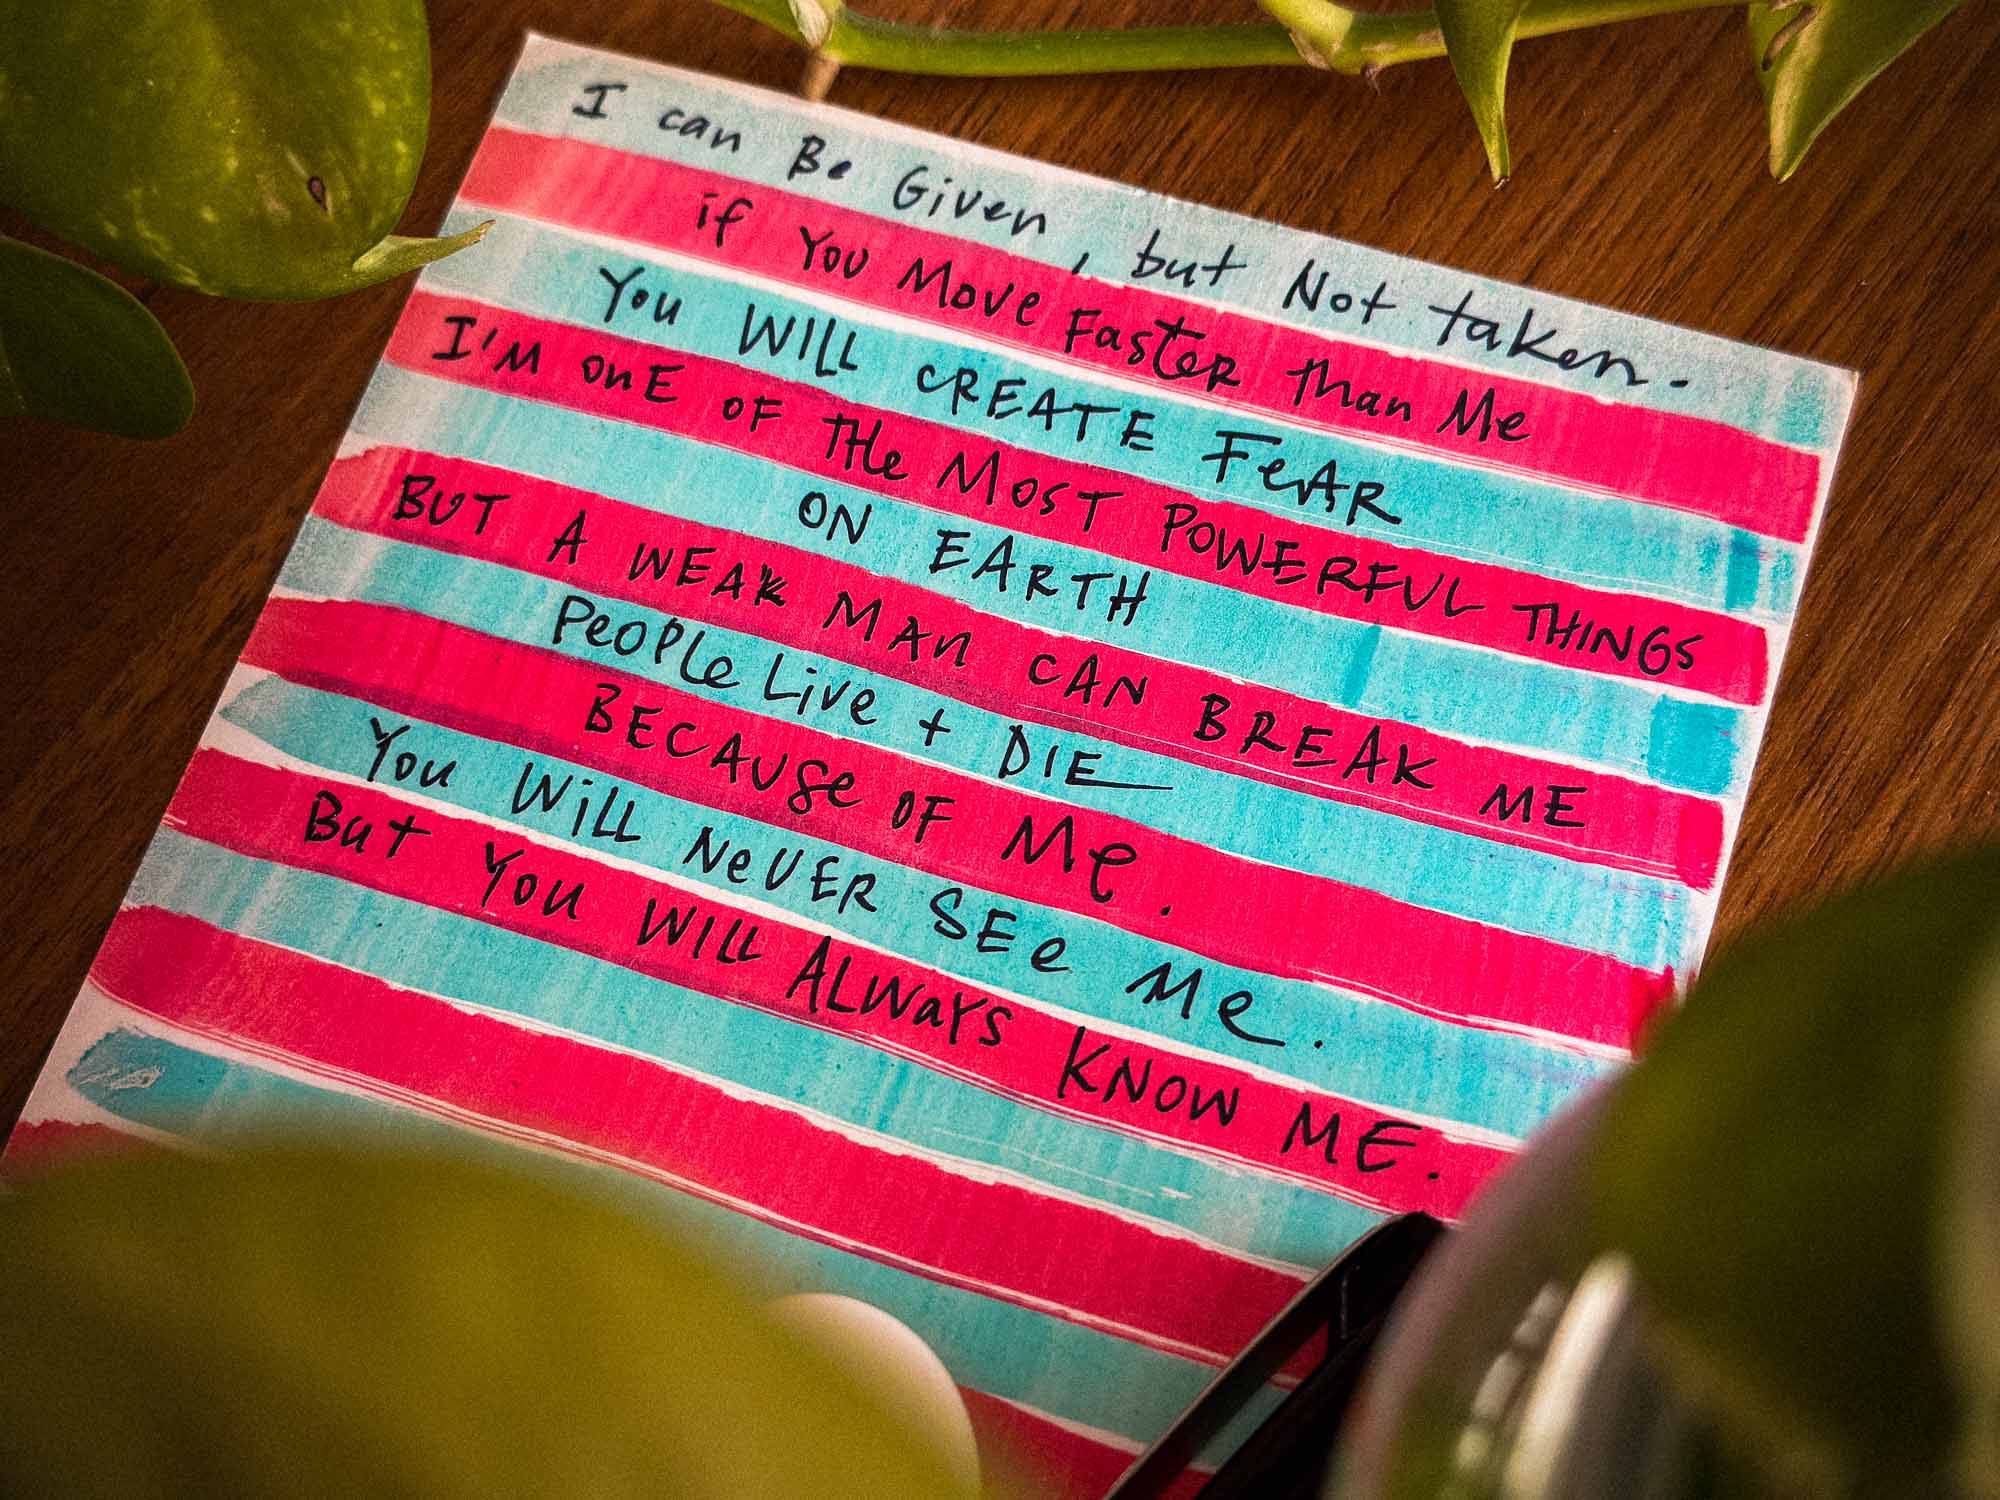 I can Be Given, but Not taken.
if You Move Faster Than Me
You WILL CREATE FeAR
I'M OnE OF THe MOST POWERFUL THINGS
ON EARTH
BUT A WEAK MAn CAN BREAK ME
PeOPLe Live + DIE
BECAUSe OF Me.
You WiLL NeVER SEe Me.
But You WILL ALWaYS KNOW ME.